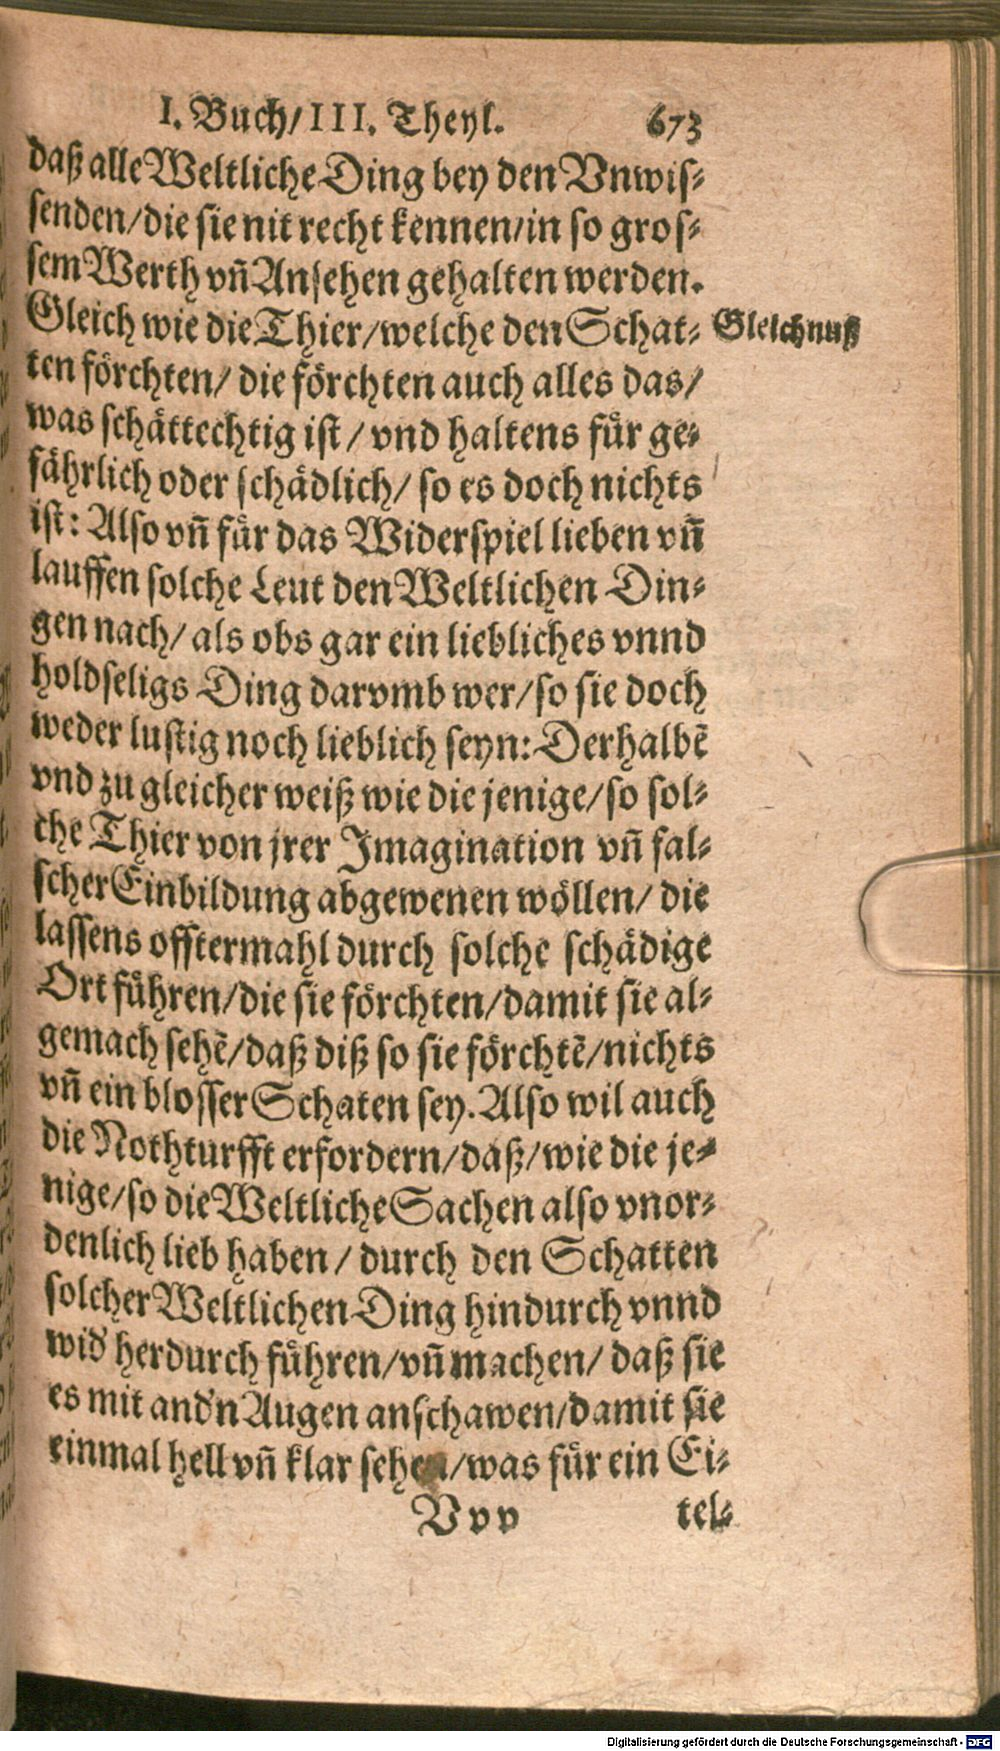 I. Buch/III. Theyl. 673
daß alle Weltliche Ding bey den Vnwis-
senden/die sie nit recht kennen/in so gros-
sem Werth vñ Ansehen gehalten werden.
Gleich wie die Thier/welche den Schat-
Gleichnuß
ten förchten/ die förchten auch alles das/
was schättechtig ist / vnd haltens für ge-
fährlich oder schädlich/ so es doch nichts
ist: Also vñ für das Widerspiel lieben vñ
lauffen solche Leut den Weltlichen Din-
gen nach/ als obs gar ein liebliches vnnd
holdseligs Ding darvmb wer/so sie doch
weder lustig noch lieblich seyn: Derhalbẽ
vnd zu gleicher weiß wie die jenige/so sol-
che Thier von jrer Imagination vñ fal-
scher Einbildung abgewenen wöllen/ die
lassens offtermahl durch solche schädige
Ort führen/die sie förchten/damit sie al-
gemach sehẽ/daß diß so sie förchtẽ/nichts
vñ ein blosser Schaten sey. Also wil auch
die Nothturfft erfordern/daß/wie die je-
nige/so die Weltliche Sachen also vnor-
denlich lieb haben / durch den Schatten
solcher Weltlichen Ding hindurch vnnd
wid' herdurch führen/vñ machen/ daß sie
es mit and'n Augen anschawen/damit sie
einmal hell vñ klar sehen/was für ein Ei-
Vvv tel-
Digitalisierung gefördert durch die Deutsche Forschungsgemeinschaft - DFG